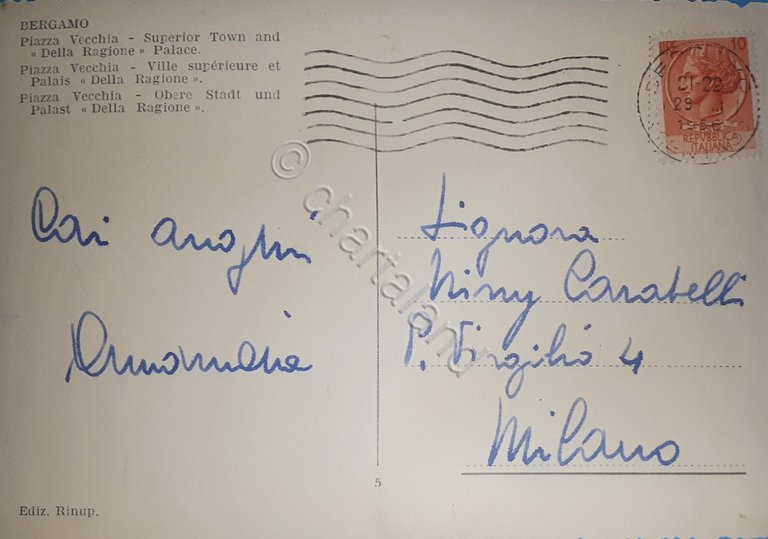 BERGAMO
Piazza Vecchia - Superior Town and
« Della Ragione » Palace.
Piazza Vecchia - Ville supérieure et
Palais « Della Ragione ».
Piazza Vecchia - Obere Stadt und
Palast « Della Ragione ».
LIRE 10
21-22
29
REPVBBLICA
ITALIANA
Cari auguri
Annamaria
Signora
Ninny Caratelli
P. Virgilio 4
Milano
© chartaland
5
Ediz. Rinup.